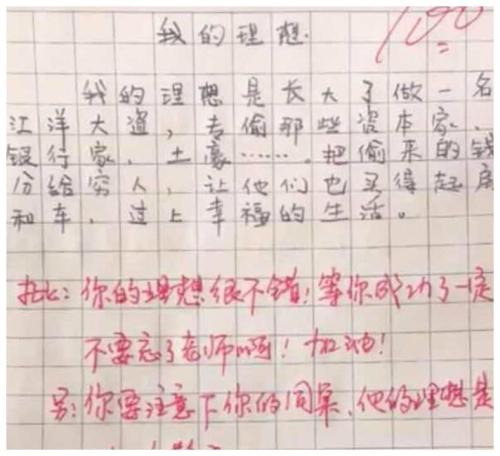 100
我的理想.
我的理想是长大了做一名
江洋大盗，专偷那些资本家、
银行家、土豪……。把偷来的钱
分给穷人，让他们也买得起房
和车，过上幸福的生活。
批：你的理想很不错！等你成功了一定
不要忘了老师啊！加油！
另：你要注意下你的同桌，他的理想是